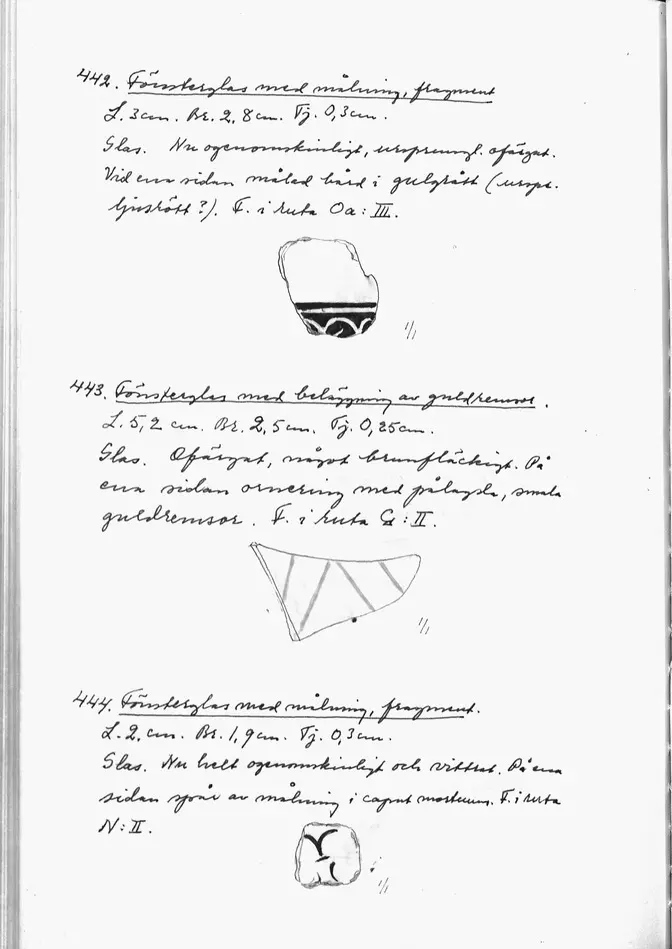 442. Fönsterglas med målning, fragment
L. 3 cm. Br. 2,8 cm. Tj. 0,3 cm.
Glas. Nu ogenomskinligt, ursprungl. ofärgat.
Vid ena sidan målad bård i gulgrått (urspr.
ljusrött?). F. i ruta Oa: III.
1/1
443. Fönsterglas med beläggning av guldremsor.
L. 5,2 cm. Br. 2,5 cm. Tj. 0,25 cm.
Glas. Ofärgat, något brunfläckigt. På
ena sidan ornering med pålagda, smala
guldremsor. F. i ruta G: II.
1/1
444. Fönsterglas med målning, fragment.
L. 2 cm. Br. 1,9 cm. Tj. 0,3 cm.
Glas. Nu helt ogenomskinligt och vittrat. På ena
sidan spår av målning i caput mortuum. F. i ruta
N: II.
1/1